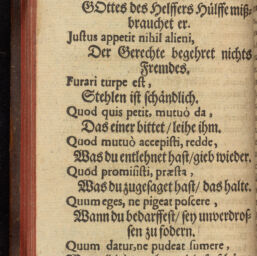 GOttes des Helffers Hülffe miß-
brauchet er.
Justus appetit nihil alieni,
Der Gerechte begehret nichts
Fremdes.
Furari turpe est,
Stehlen ist schändlich.
Quod quis petit, mutuò da,
Das einer bittet/ leihe ihm.
Quod mutuò accepisti, redde,
Was du entlehnet hast/ gieb wieder.
Quod promisisti, præsta,
Was du zugesaget hast/ das halte.
Quum eges, ne pigeat poscere,
Wann du bedarffest/ sey unverdroß-
sen zu fodern.
Quum datur, ne pudeat sumere,